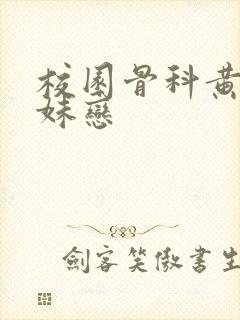 校園骨科黄
妹戀
劍客笑傲書生